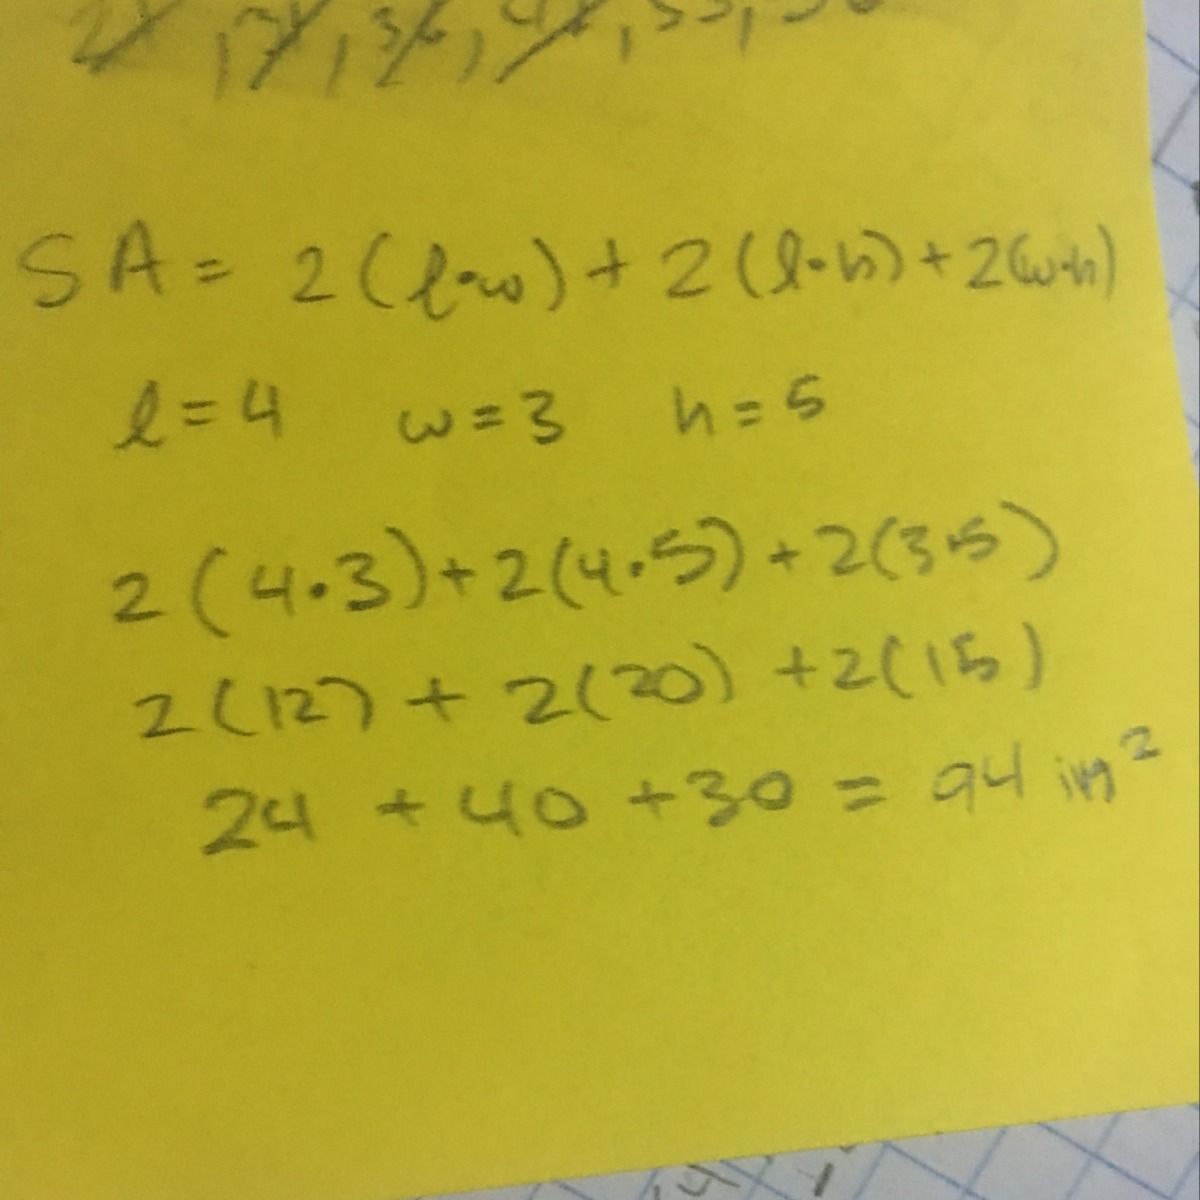 SA = 2(l·w) + 2(l·h) + 2(w·h)
l = 4 w = 3 h = 5
2(4·3) + 2(4·5) + 2(3·5)
2(12) + 2(20) + 2(15)
24 + 40 + 30 = 94 in²